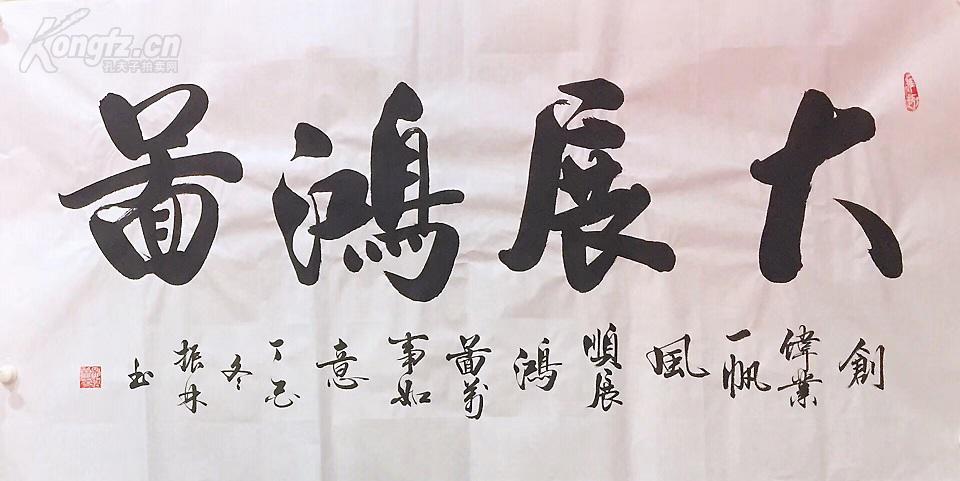 大展鴻圖
創偉業一帆風順展鴻圖萬事如意
丁酉冬振林书
Kongfz.cn
孔夫子拍卖网